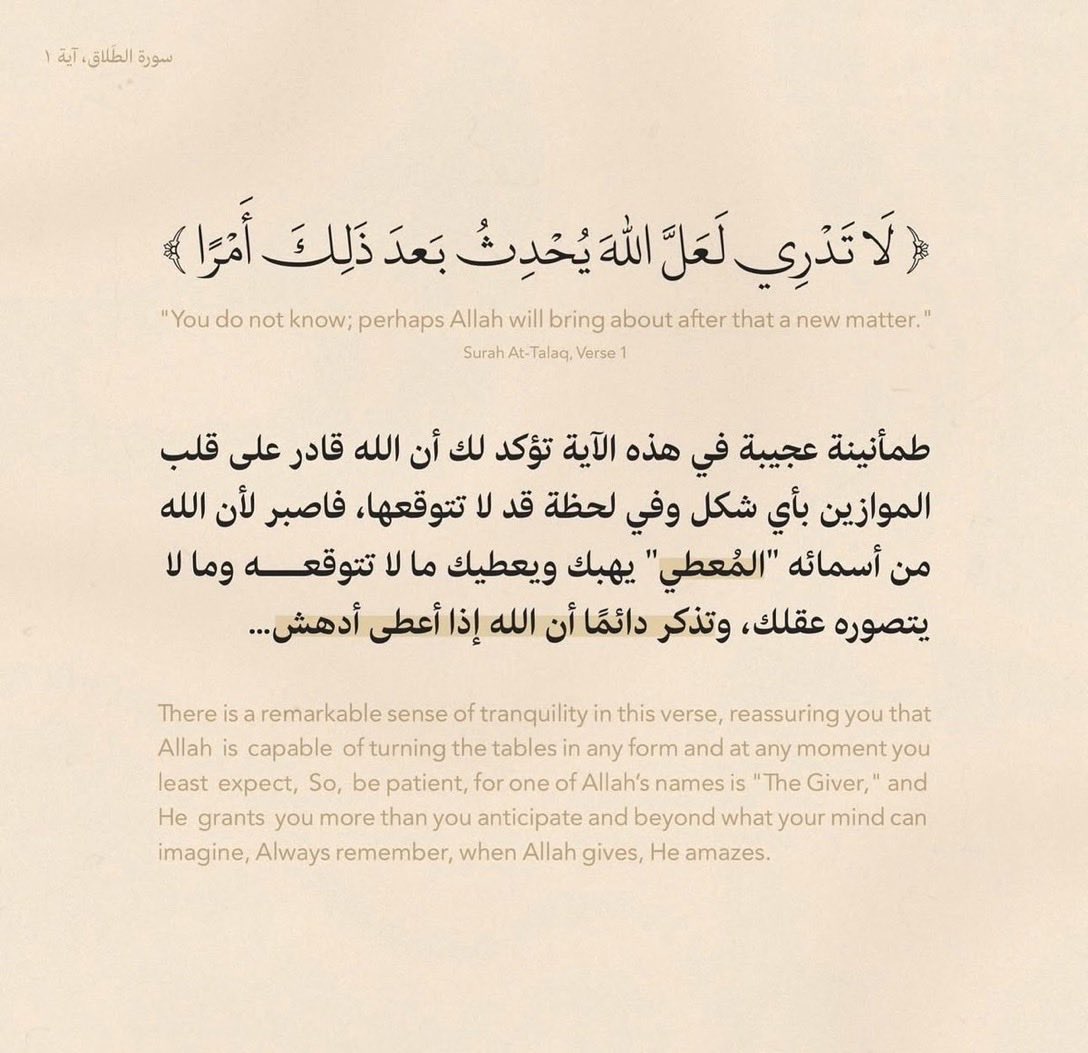 سورة الطَلاق، آية ١
﴿ لَا تَدْرِي لَعَلَّ اللهَ يُحْدِثُ بَعدَ ذَلِكَ أَمْرًا ﴾
"You do not know; perhaps Allah will bring about after that a new matter."
Surah At-Talaq, Verse 1
طمأنينة عجيبة في هذه الآية تؤكد لك أن الله قادر على قلب
الموازين بأي شكل وفي لحظة قد لا تتوقعها، فاصبر لأن الله
من أسمائه "المُعطي" يهبك ويعطيك ما لا تتوقعـــه وما لا
يتصوره عقلك، وتذكر دائمًا أن الله إذا أعطى أدهش...
There is a remarkable sense of tranquility in this verse, reassuring you that
Allah is capable of turning the tables in any form and at any moment you
least expect, So, be patient, for one of Allah's names is "The Giver," and
He grants you more than you anticipate and beyond what your mind can
imagine, Always remember, when Allah gives, He amazes.